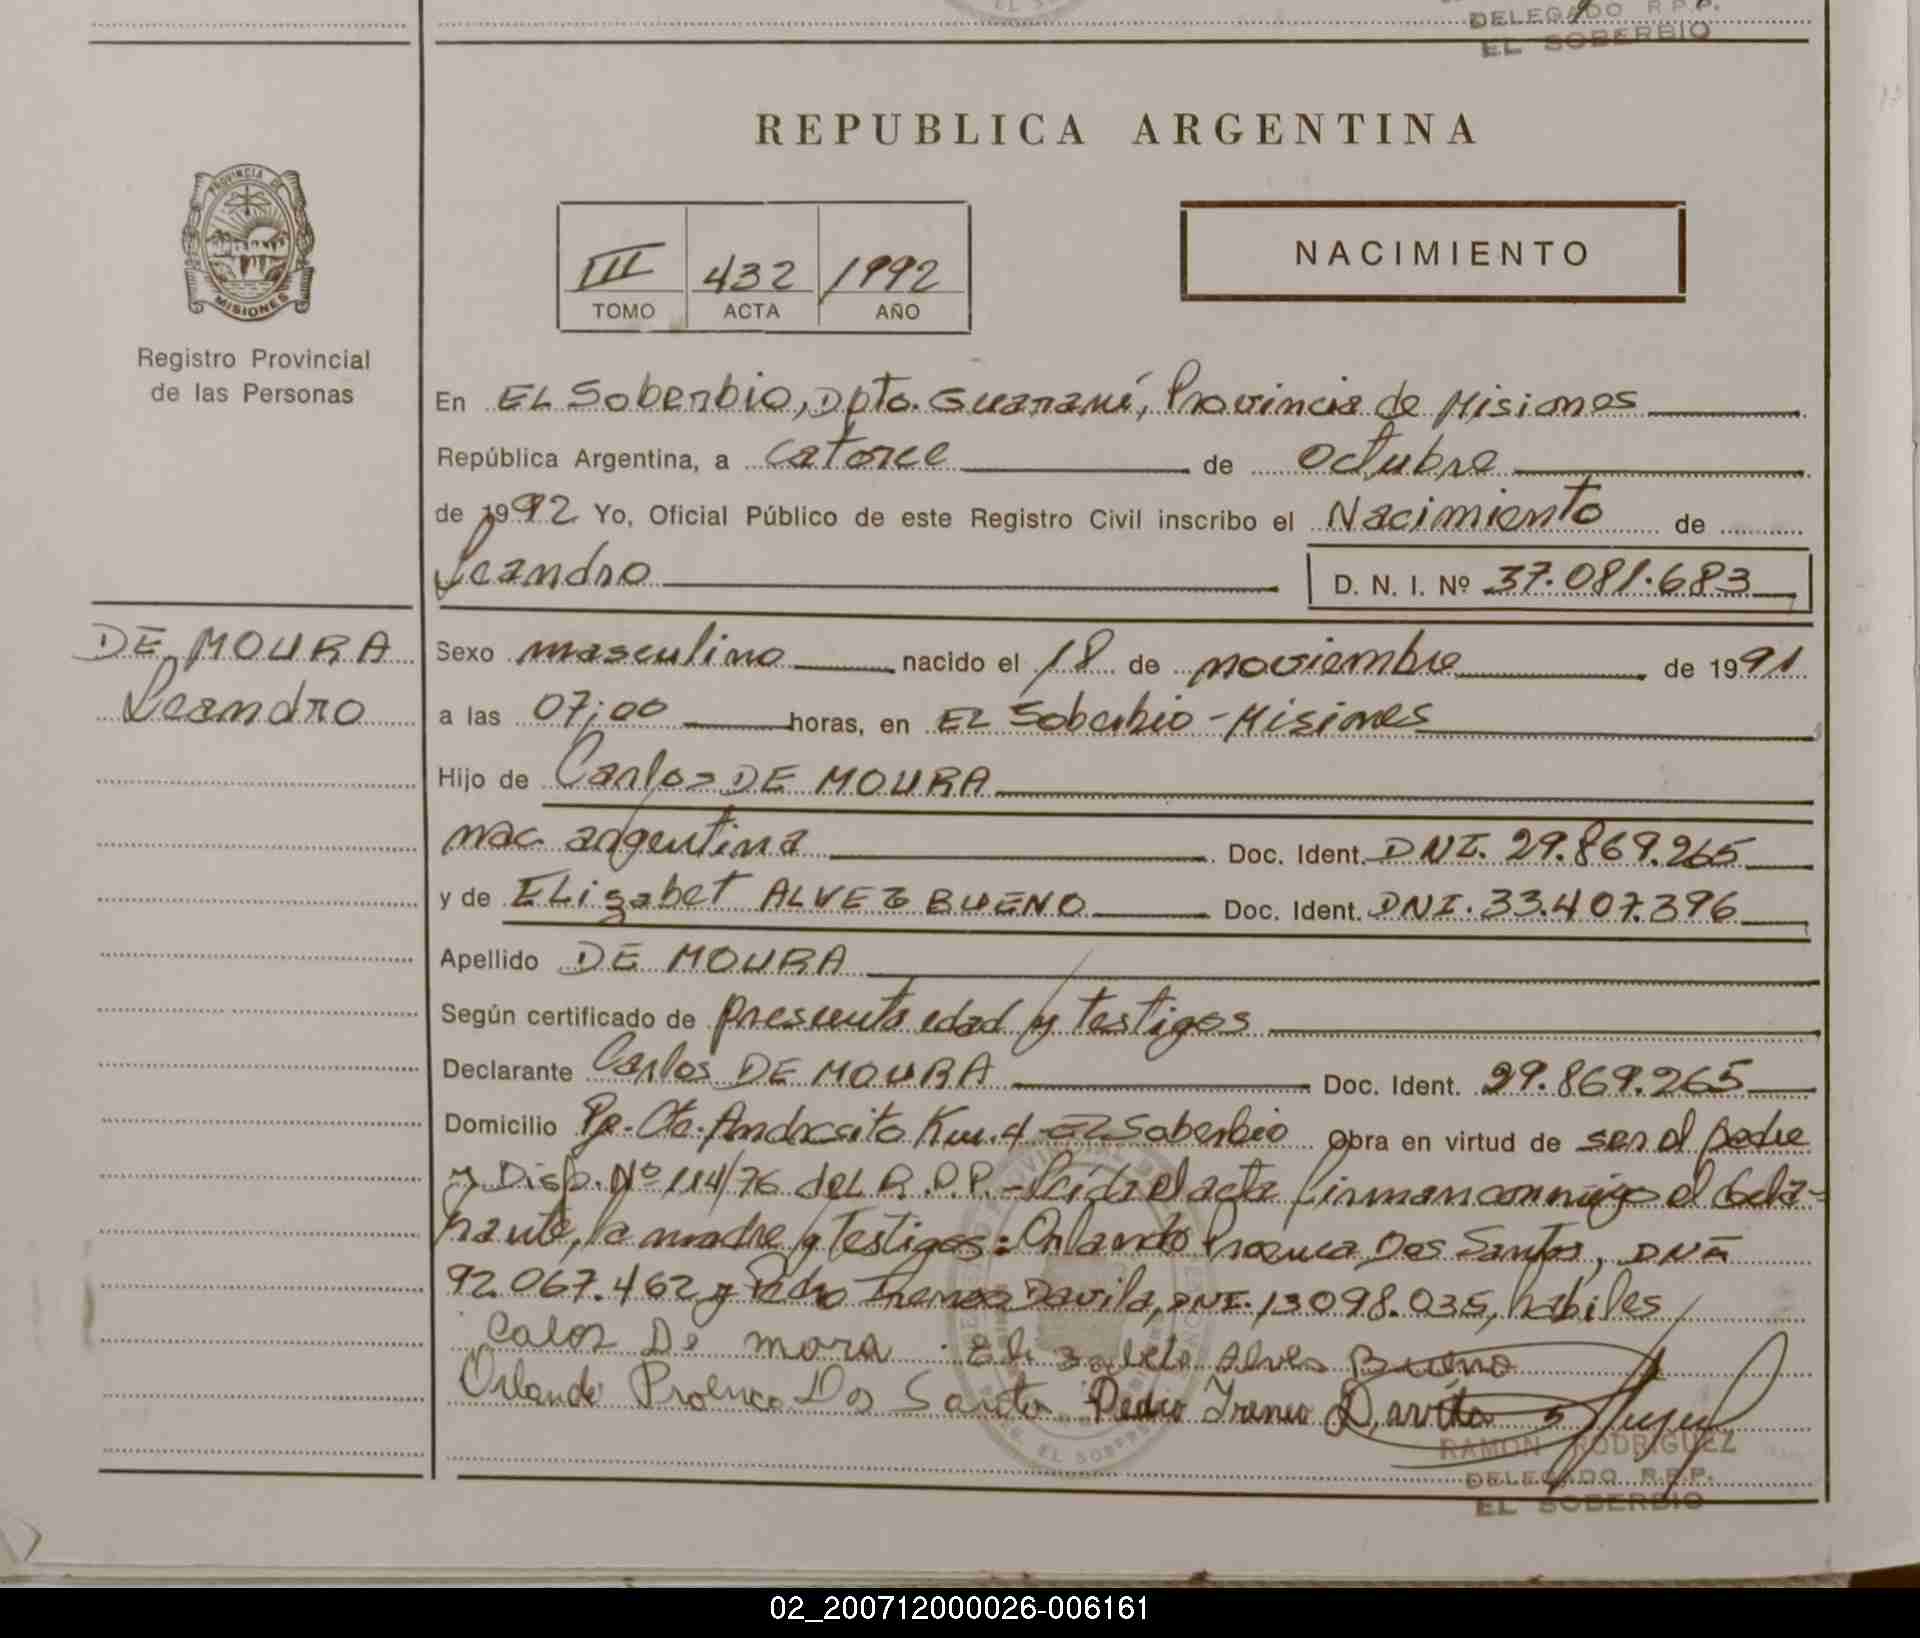 DELEGADO R.P.P.
EL SOBERBIO
REPUBLICA ARGENTINA
PROVINCIA DE
MISIONES
Registro Provincial
de las Personas
III 432 1992
TOMO ACTA AÑO
NACIMIENTO
En EL Soberbio, Dpto. Guaraní, Provincia de Misiones
República Argentina, a catorce de octubre
de 1992 Yo, Oficial Público de este Registro Civil inscribo el Nacimiento de
Leandro D. N. I. Nº 37.081.683
DE MOURA
Leandro
Sexo masculino nacido el 18 de noviembre de 1991
a las 07:00 horas, en EL Soberbio - Misiones
Hijo de Carlos DE MOURA
nac. argentina Doc. Ident. DNI. 29.869.265
y de ELizabet ALVEZ BUENO Doc. Ident. DNI. 33.407.396
Apellido DE MOURA
Según certificado de presunta edad y testigos
Declarante Carlos DE MOURA Doc. Ident. 29.869.265
Domicilio Pje. Cte. Andresito Km. 4 - EL Soberbio Obra en virtud de ser el padre
y Disp. Nº 114/76 del R.P.P. - Leída el acta firman conmigo el decla-
rante, la madre y testigos: Orlando Proenca Dos Santos, DNI
92.067.462 y Pedro Ireneo Davila, DNI. 13.098.035, habiles
Calos De mora Elizabete Alves Bueno
Orlando Proenca Dos Santos Pedro Ireneo Davila
RAMON RODRIGUEZ
DELEGADO R.P.P.
EL SOBERBIO
02_200712000026-006161